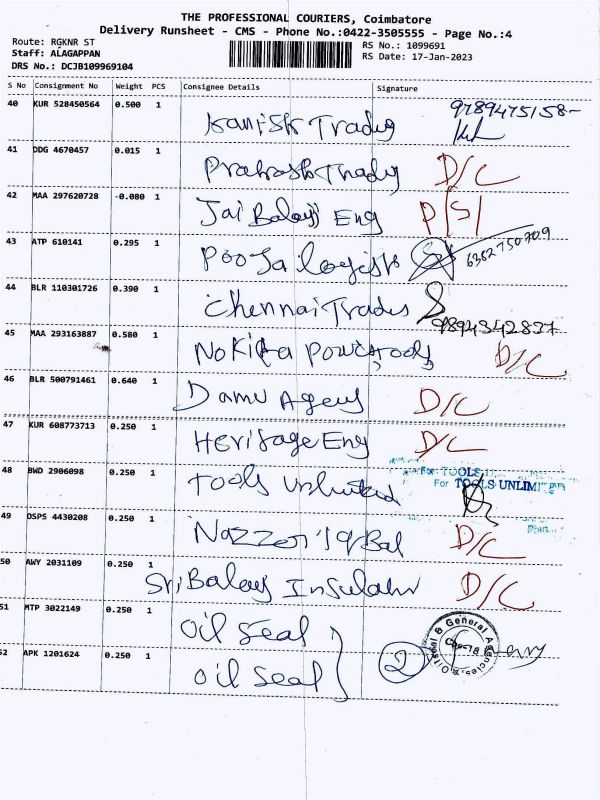 THE PROFESSIONAL COURIERS, Coimbatore
Delivery Runsheet - CMS - Phone No.:0422-3505555 - Page No.:4
Route: RGKNR ST
Staff: ALAGAPPAN
DRS No.: DCJB109969104
RS No.: 1099691
RS Date: 17-Jan-2023
S No Consignment No Weight PCS Consignee Details Signature
40 KUR 528450564 0.500 1 Kanisk Trading 9789475158
41 DDG 4670457 0.015 1 Prakash Trady D/C
42 MAA 297620728 -0.080 1 Jai Balaji Eng P/S/
43 ATP 610141 0.295 1 Pooja logistk 6362750709
44 BLR 110301726 0.390 1 Chennai Trades 9894342837
45 MAA 293163887 0.580 1 Nokita Powertools D/C
46 BLR 500791461 0.640 1 Damu Agency D/C
47 KUR 608773713 0.250 1 Heritage Eng D/C
48 BWD 2906098 0.250 1 Tools unlimited For TOOLS UNLIMITED
49 OSPS 4430208 0.250 1 Nazzer Iqbal D/C
50 AWY 2031109 0.250 1 Sri Balaji Insulatr D/C
51 MTP 3022149 0.250 1 Oil Seal
52 APK 1201624 0.250 1 Oil Seal 2 Oil Seal & General Agencies